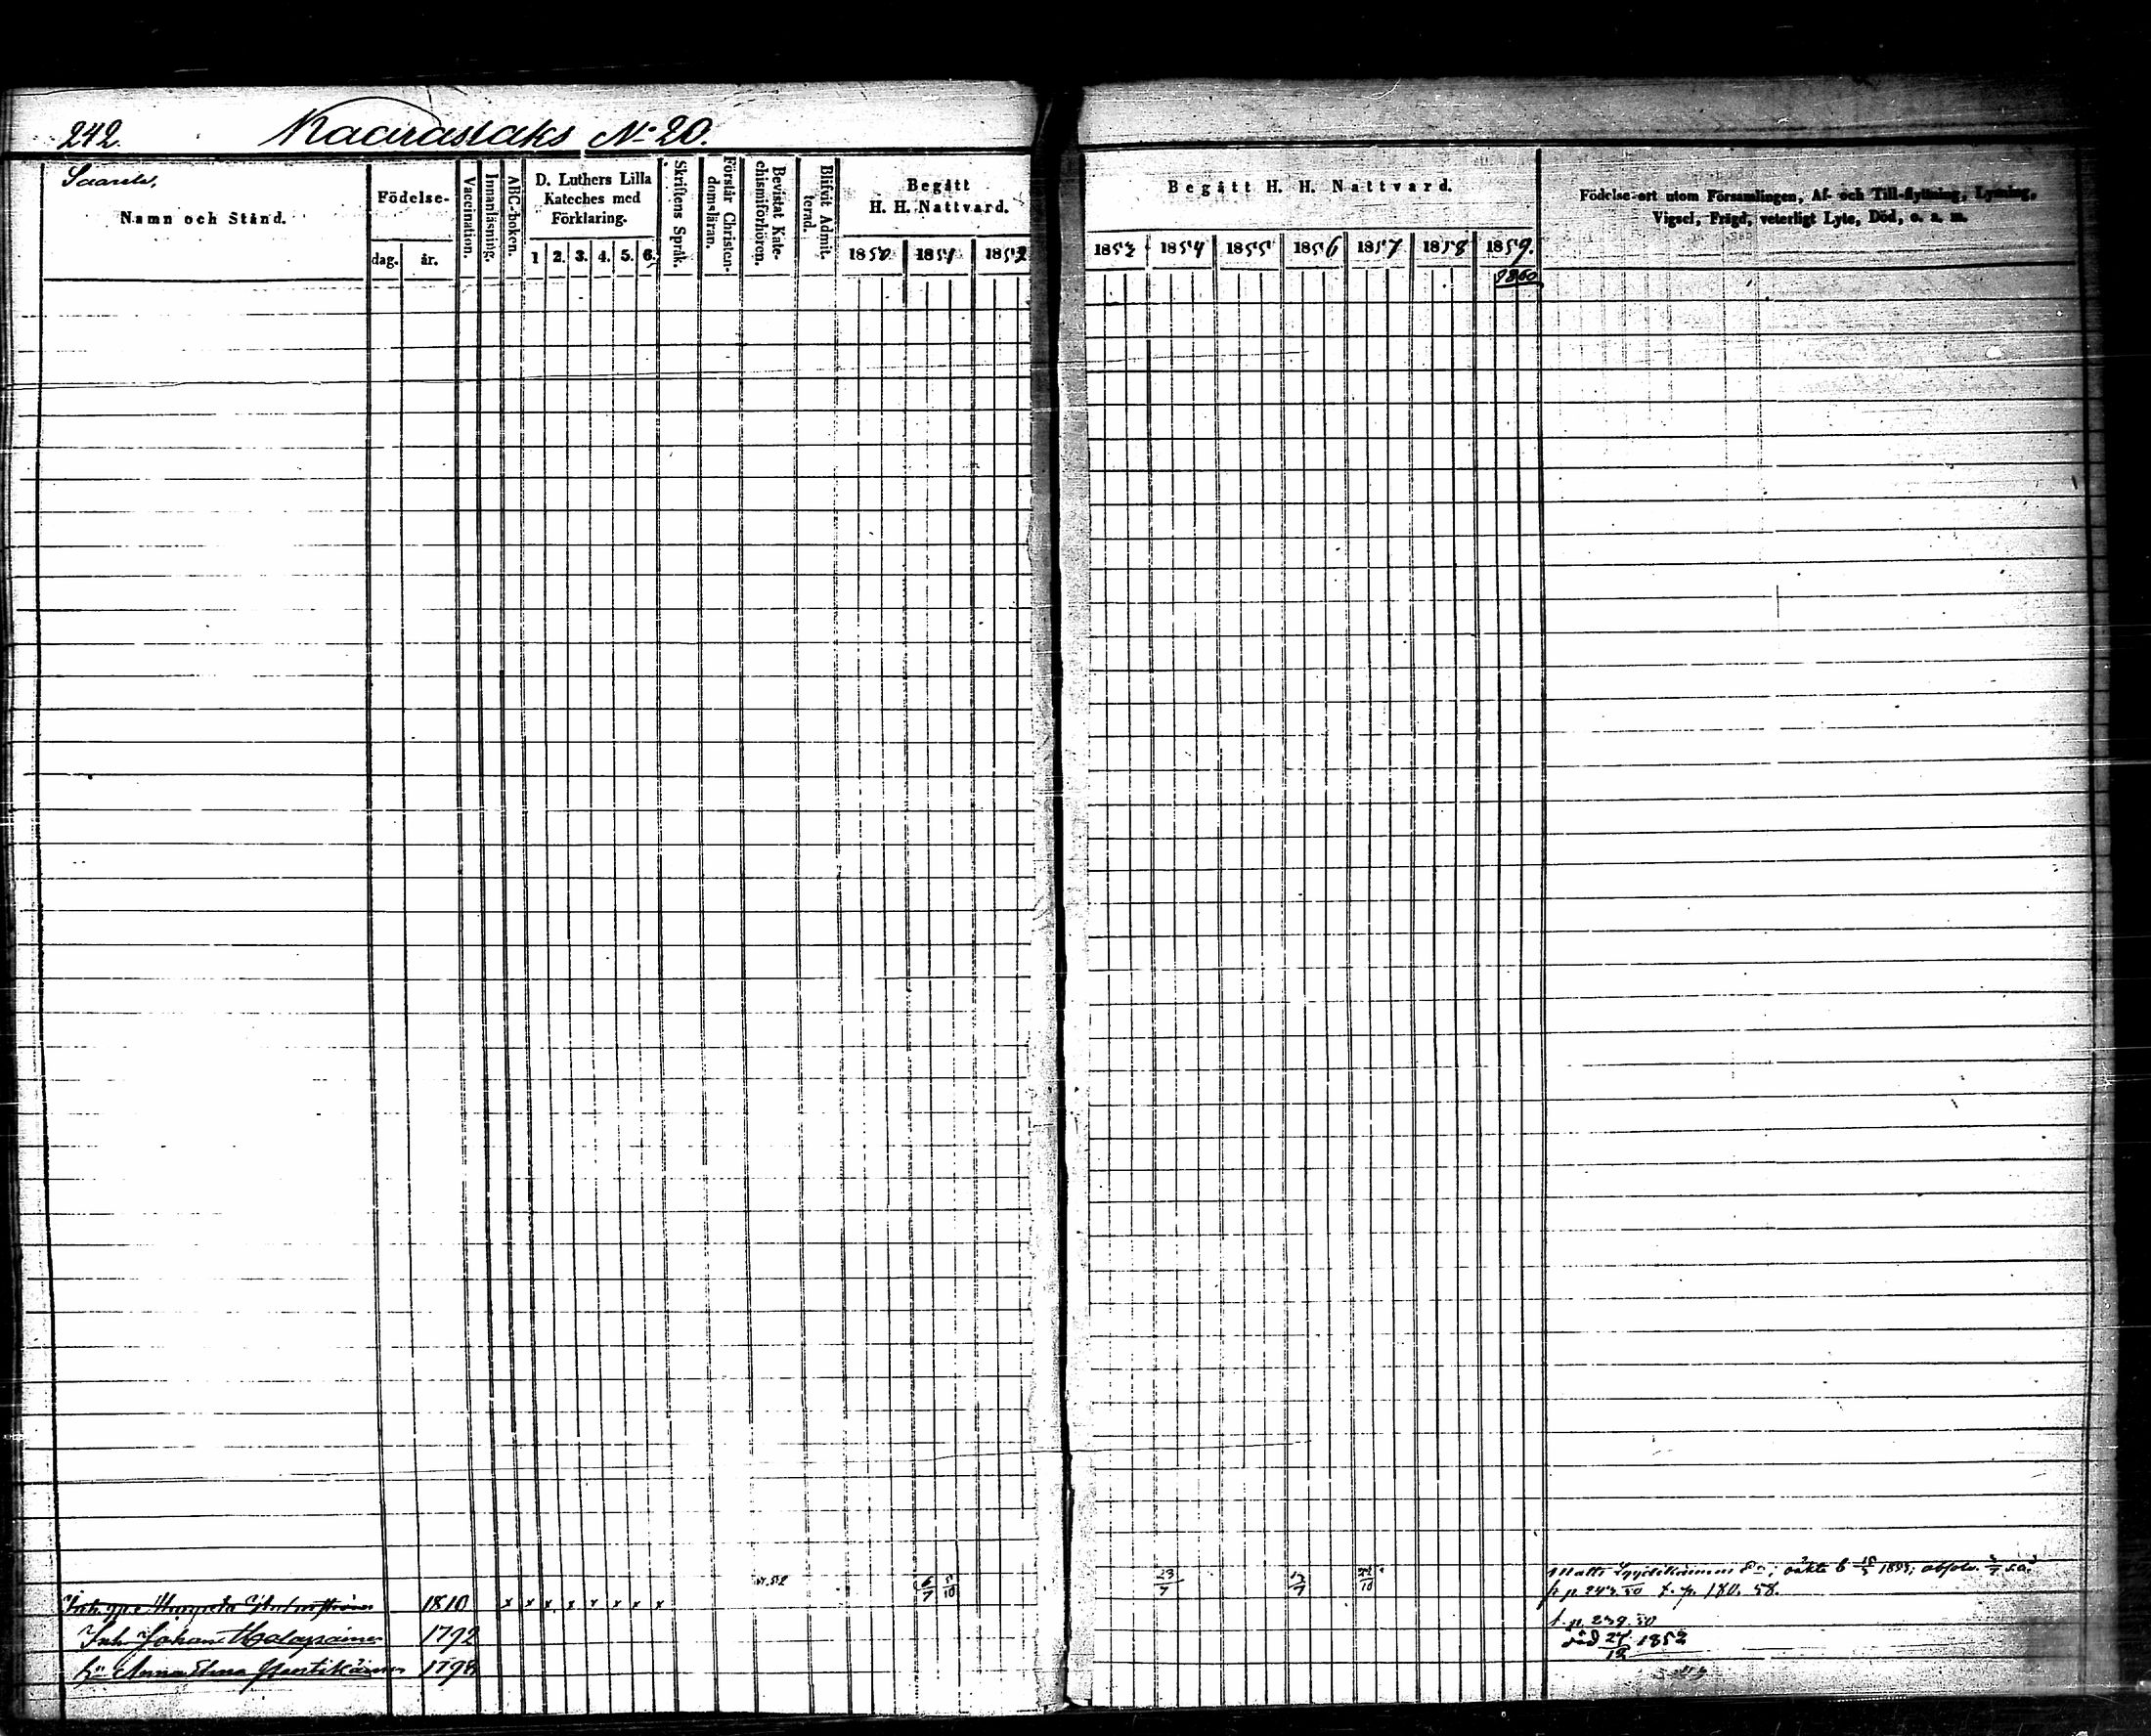 242. Kaarastaks No 20.
Saarela,
Namn och Stånd.
Födelse-
dag. år.
Vaccination.
Innanläsning.
ABC-boken.
D. Luthers Lilla
Kateches med
Förklaring.
1 2. 3. 4. 5. 6.
Skriftens Språk.
Förstår Christen-
domsläran.
Bevistat Kate-
chismiförhören.
Blifvit Admit-
terad.
Begått
H. H. Nattvard.
1850 1851 1852
Begått H. H. Nattvard.
1853 1854 1855 1856 1857 1858 1859.
1860
Födelse-ort utom Församlingen, Af- och Till-flyttning, Lysning,
Vigsel, Frägd, veterligt Lyte, Död, o. a. m.
Matts 1853; absolv.
1810 x x x x x x x 52 6/7 5/10 23/7 13/7 p. 180. 58.
Inh Johan 1792 död 27/12 1852
h:u Anna Elina 1798